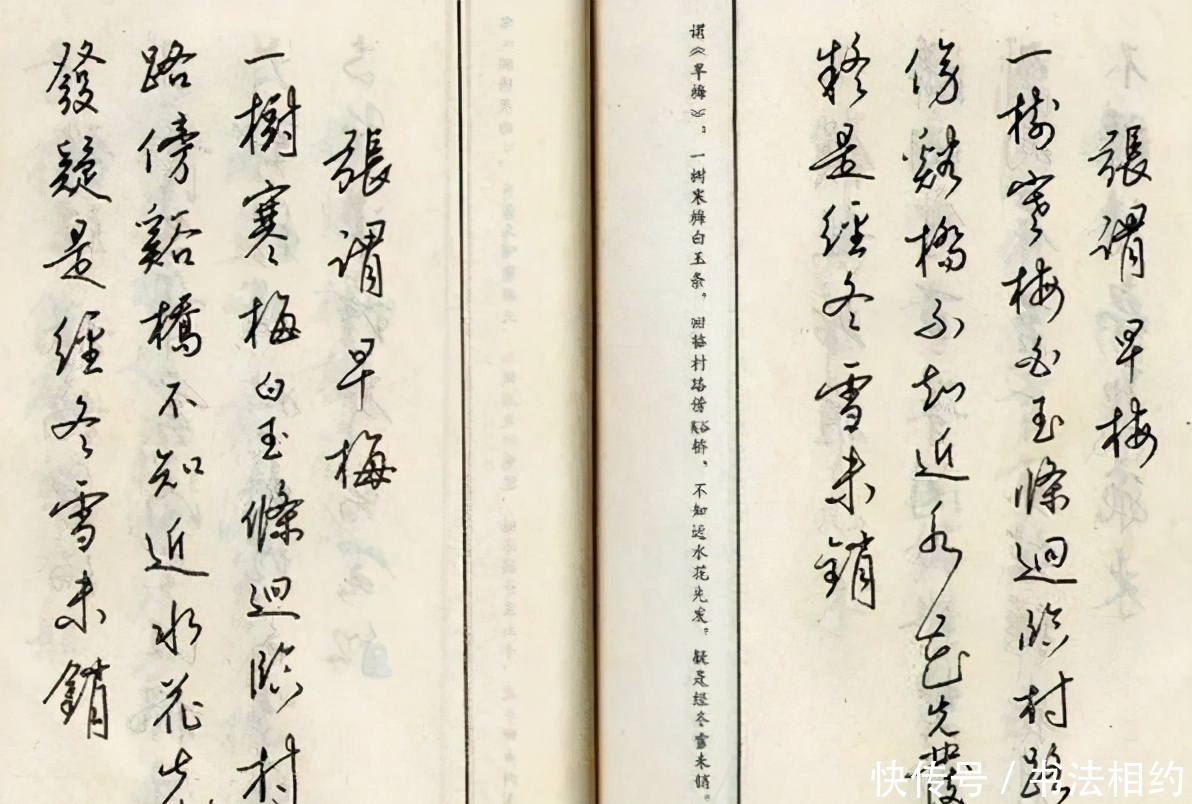 張謂早梅
一樹寒梅白玉條迴臨村路
傍谿橋不知近水花先發
疑是經冬雪未銷
《早梅》：一树寒梅白玉条，迥临村路傍谿桥，不知近水花先发，疑是经冬雪未销。
張謂早梅
一樹寒梅白玉條迴臨村
路傍谿橋不知近水花先
發疑是經冬雪未銷
快传号 / 书法相约